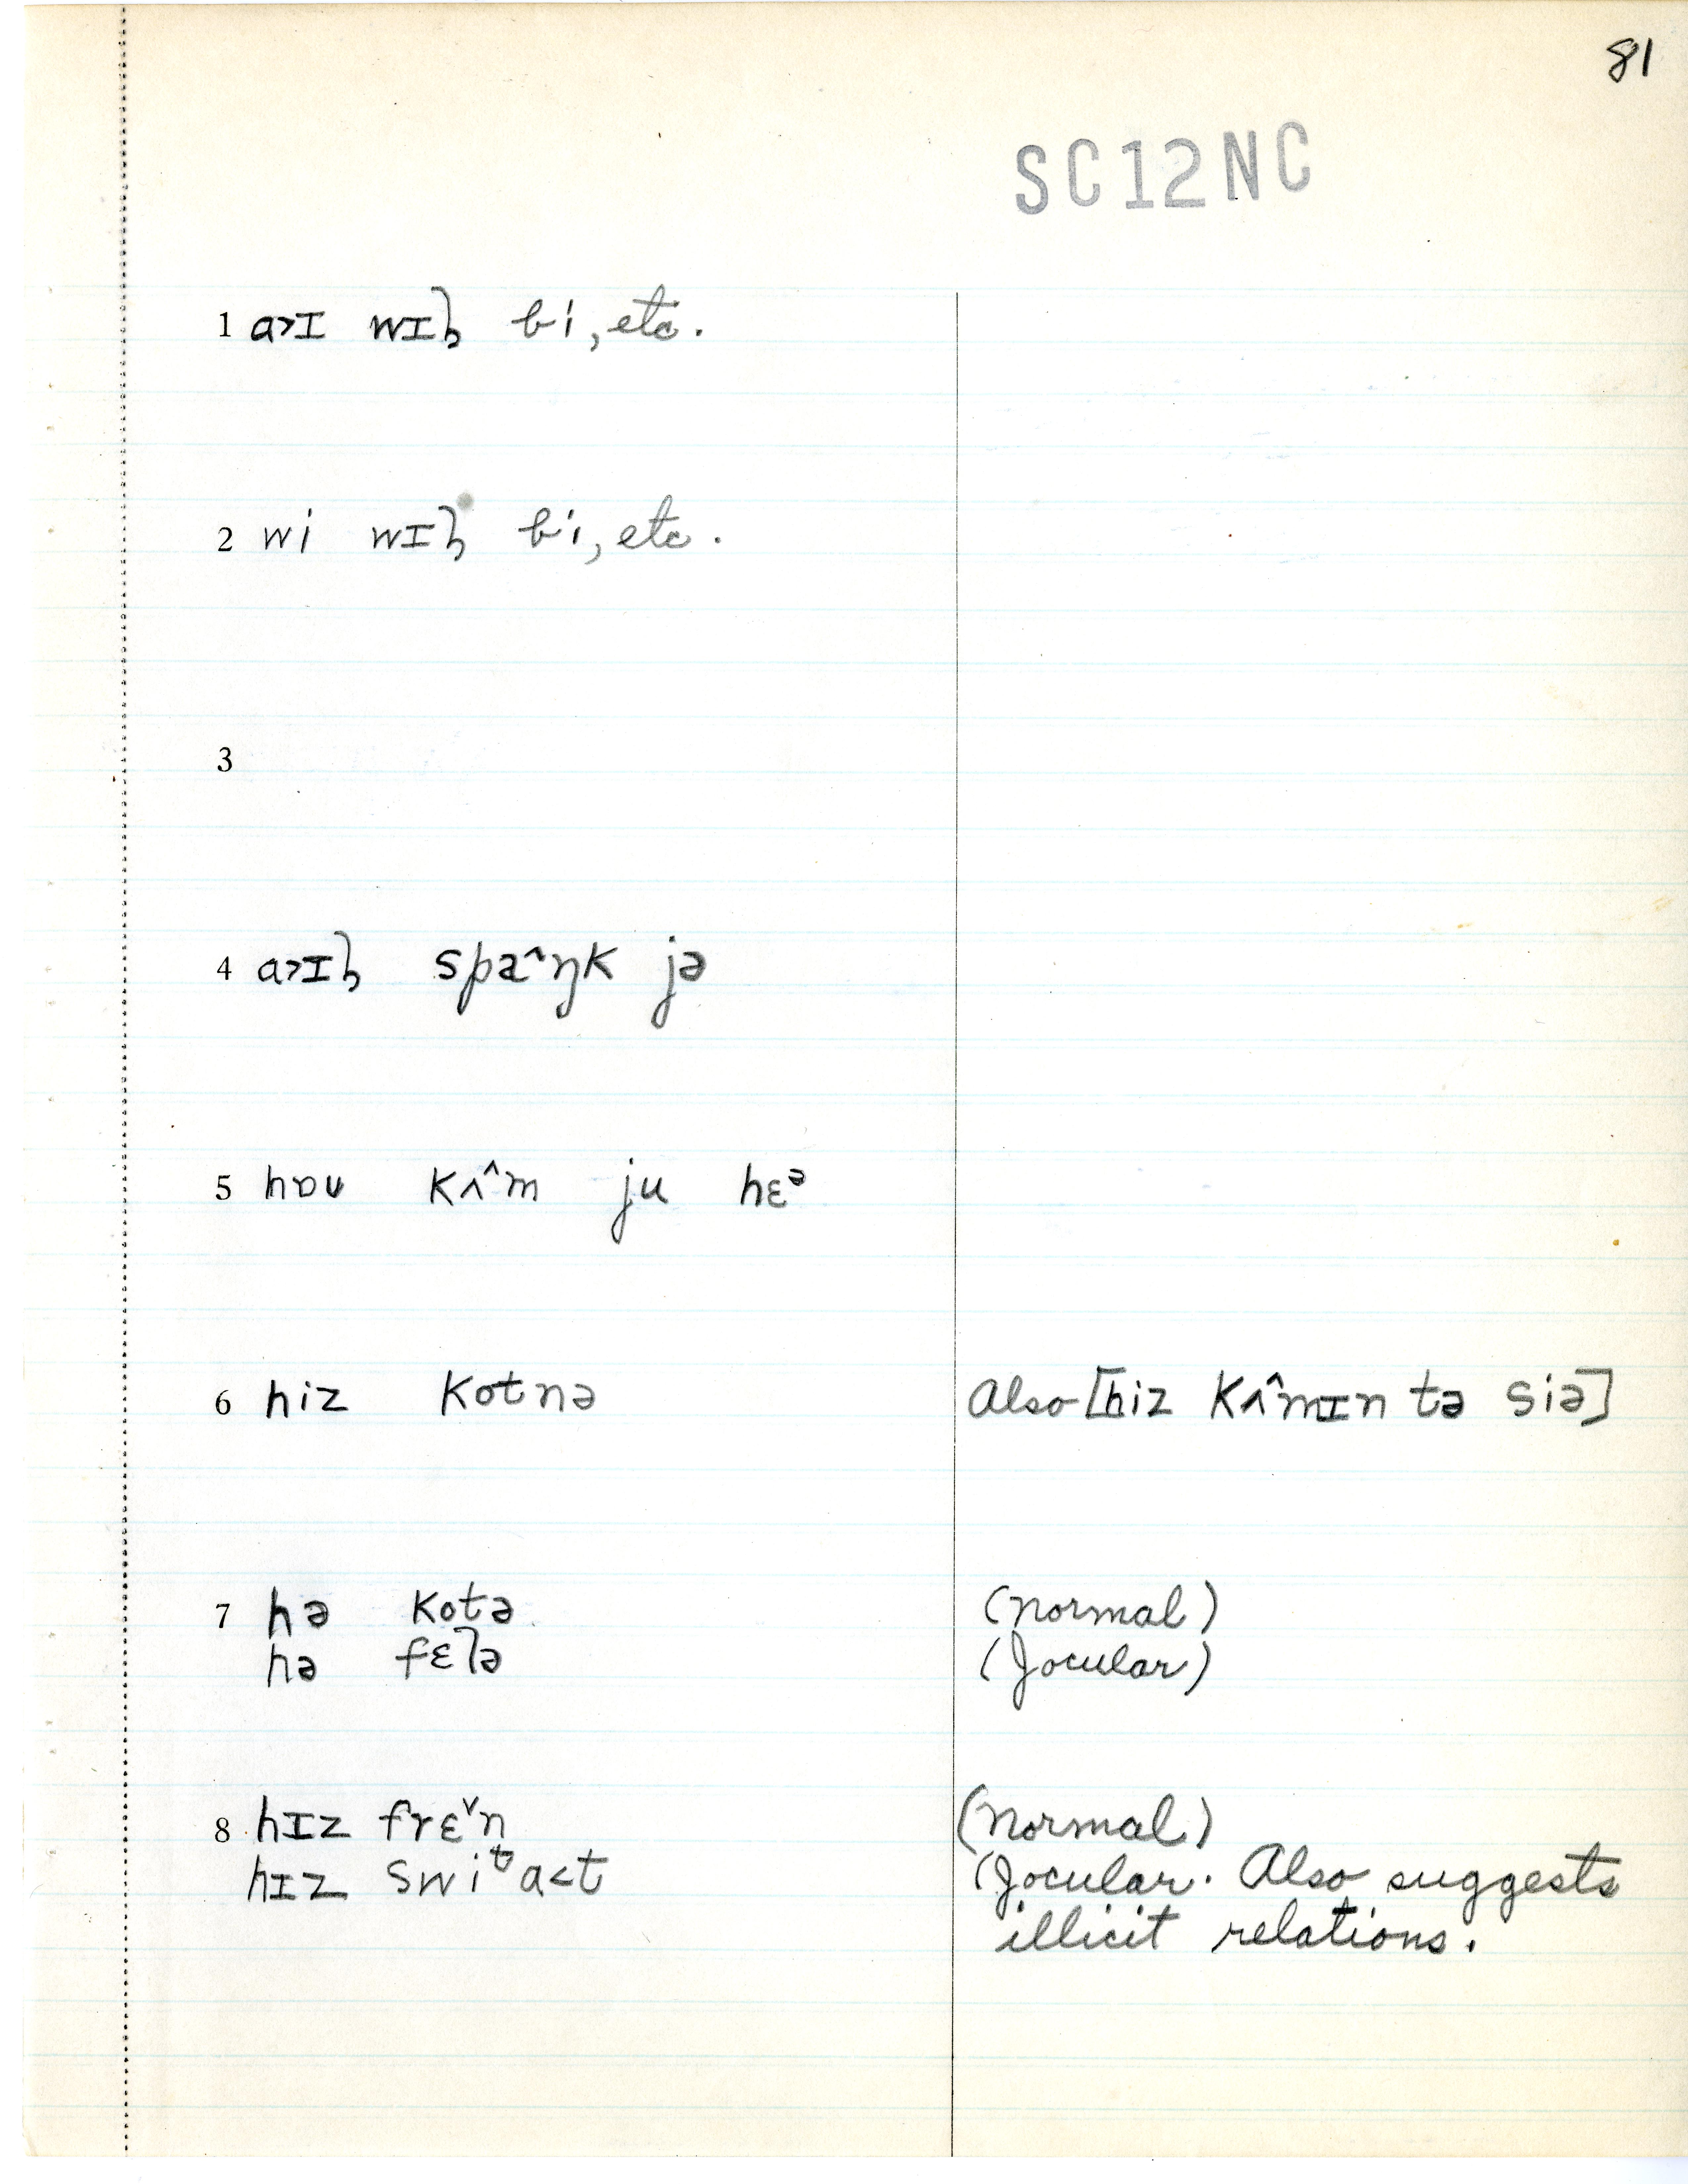 81
SC12NC
1 a˃ɪ wɪl̥ bi, etc.
2 wi wɪl̥ bi, etc.
3
4 a˃ɪl̥ spæ^ŋk jə
5 hɒʊ kʌ^m ju hɛᵊ
6 hiz kotnə Also [hiz kʌ^mɪn tə siə]
7 hə kotə (normal)
hə fɛlə (Jocular)
8 hɪz frɛˇn (normal)
hɪz swiᵗ̬a˂t (Jocular. Also suggests
illicit relations.